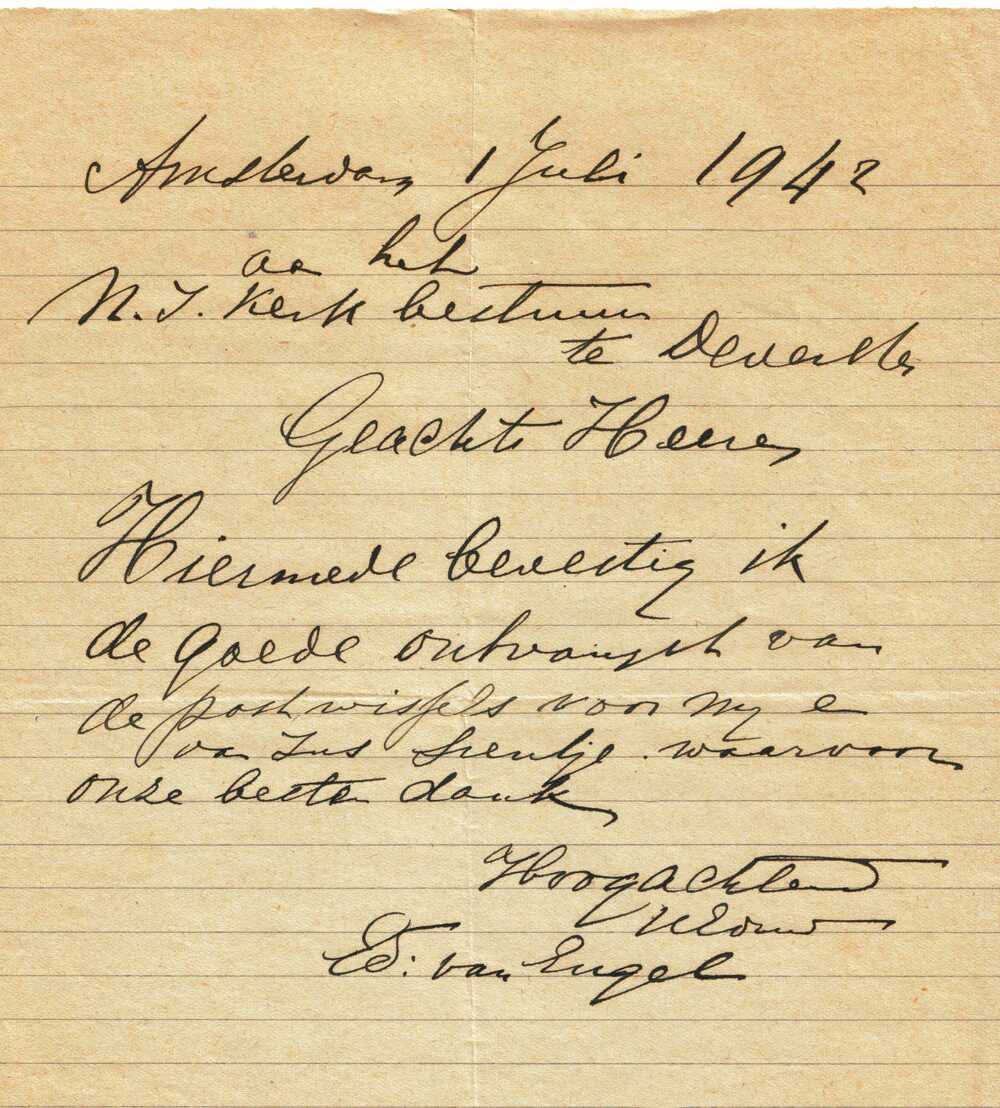 Amsterdam 1 Juli 1942
aa het
N. I. Kerk bestuur
te Deventer
Geachte Heeren
Hiermede bevestig ik
de goede ontvangst van
de postwissels voor mij e
van Zus waarvoor
onze besten dank
Hoogachtend
Ed: van Engel